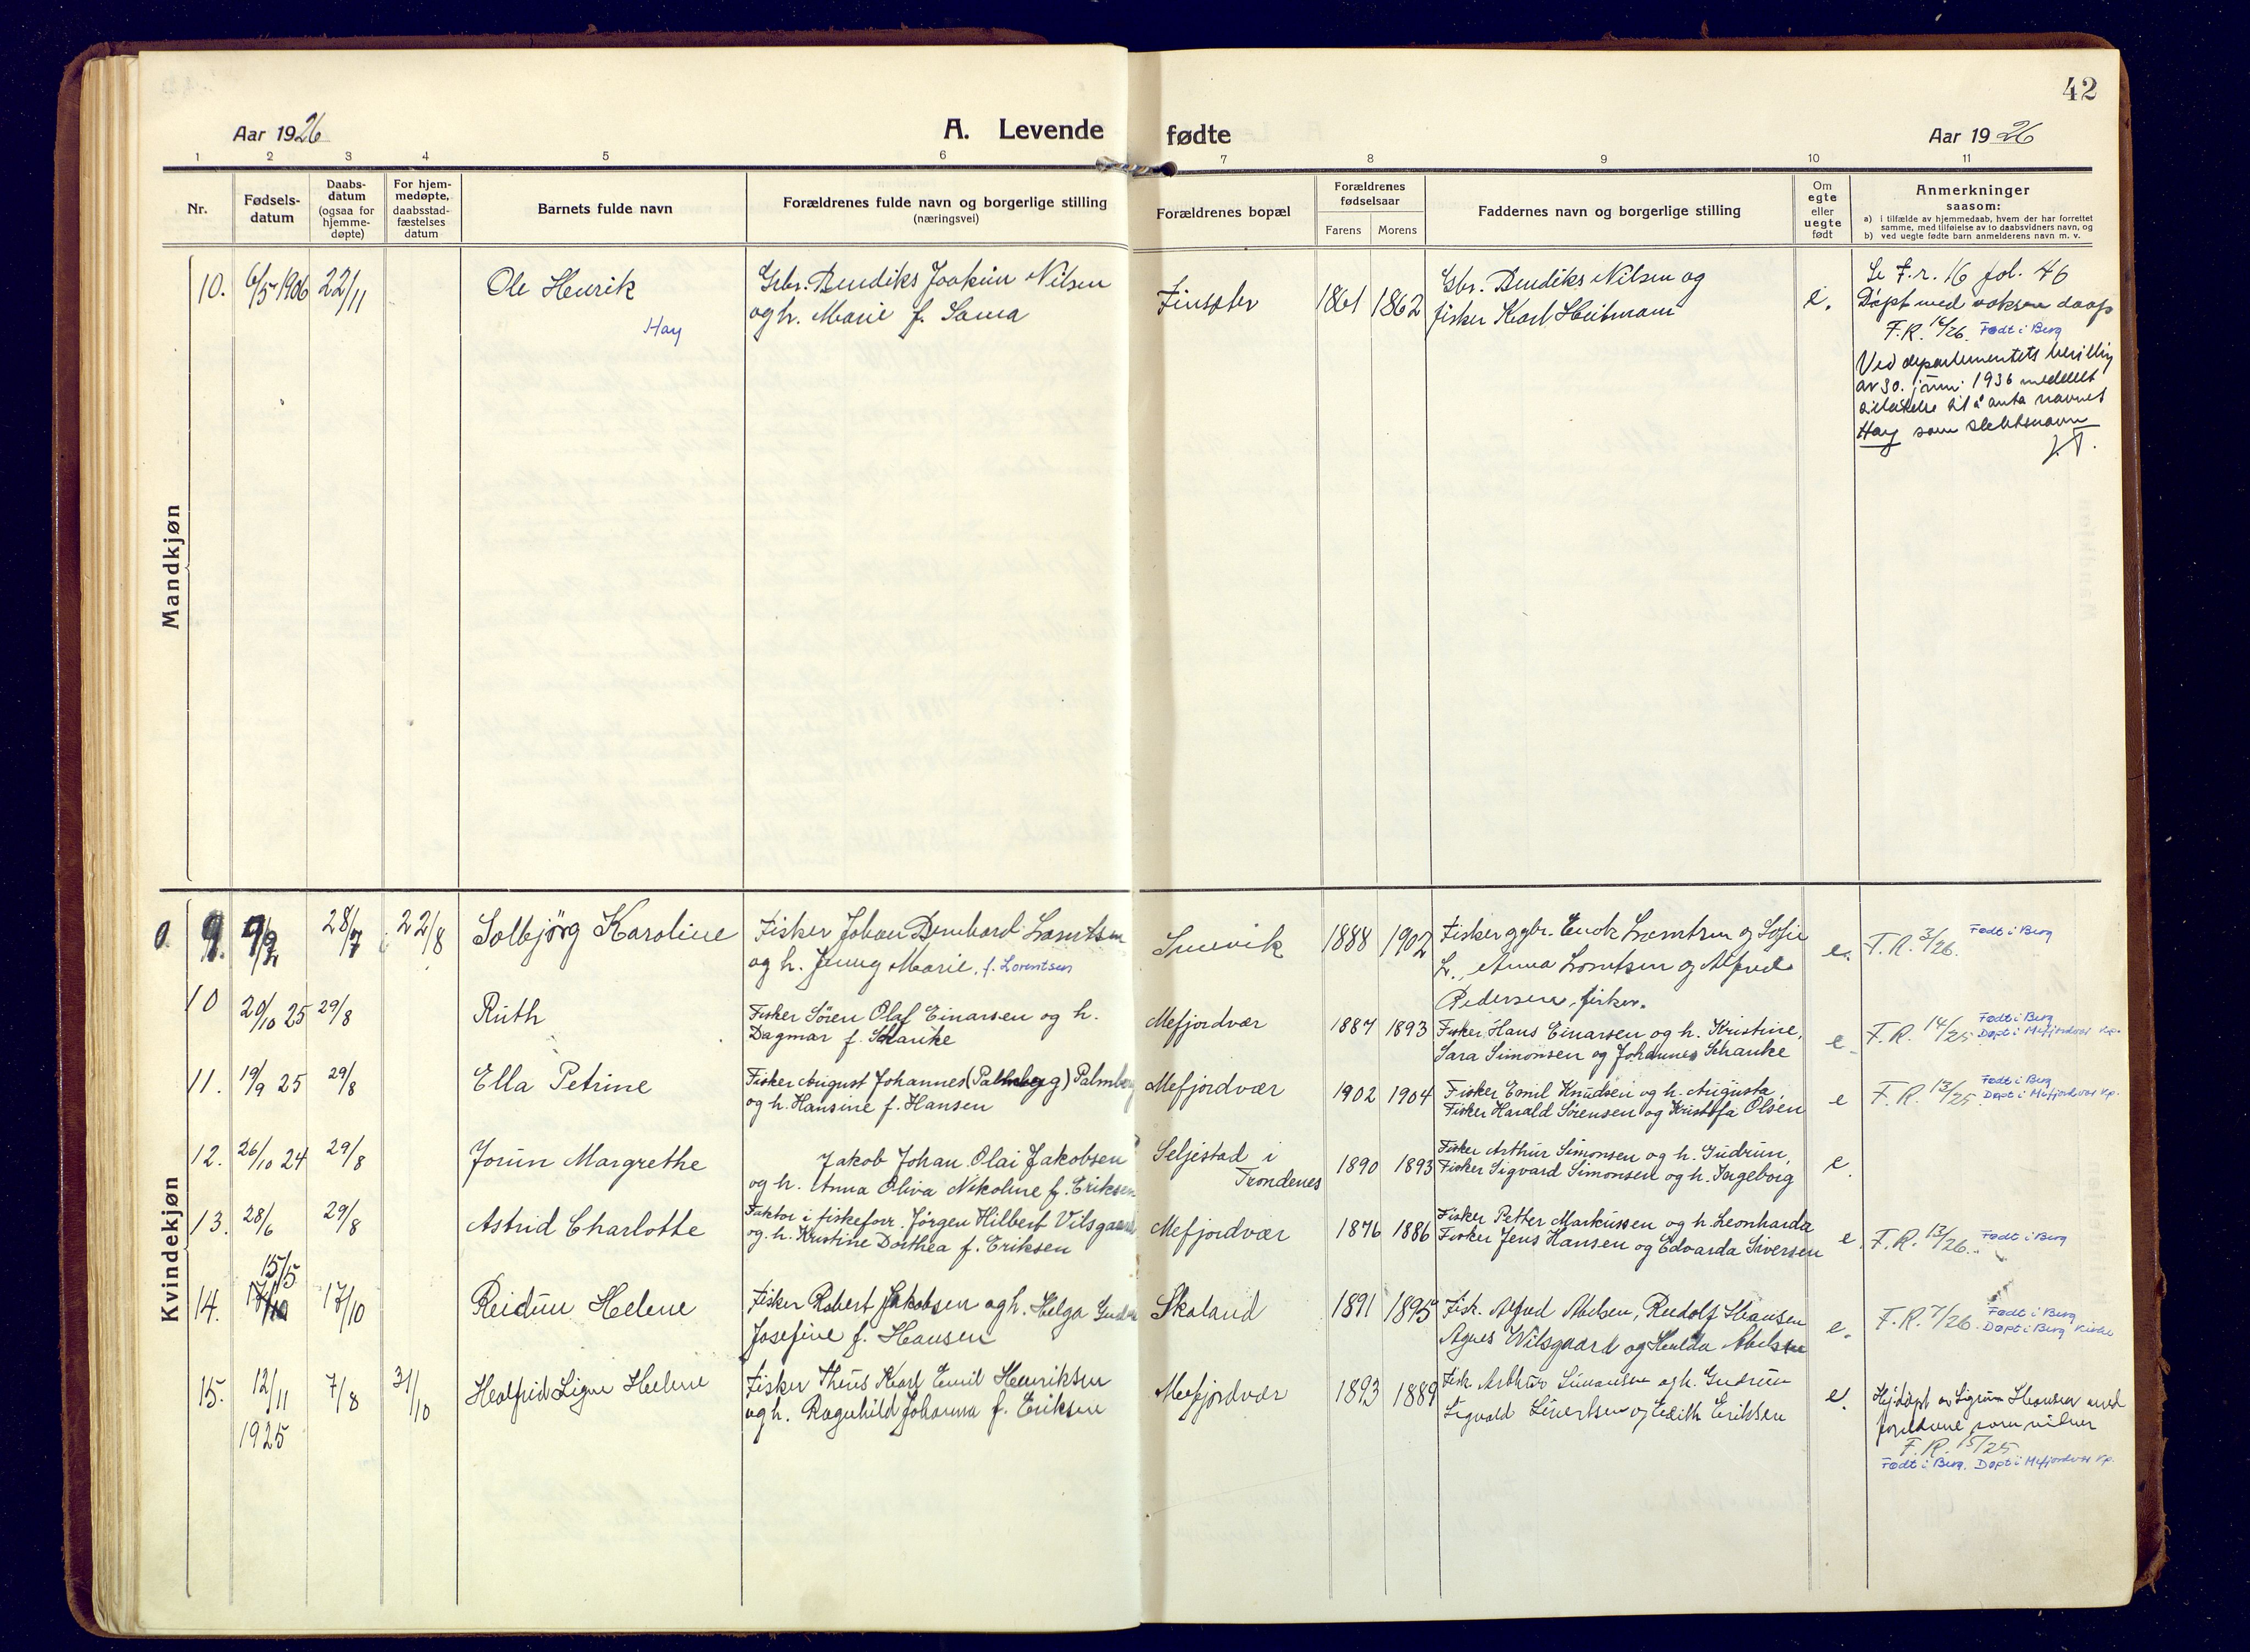 42
Aar 1926
A. Levende fødte
Aar 1926
1 2 3 4 5 6 7 8 9 10 11
Nr.
Fødsels-
datum
Daabs-
datum
(ogsaa for
hjemme-
døpte)
For hjem-
medøpte,
daabsstad-
fæstelses
datum
Barnets fulde navn
Forældrenes fulde navn og borgerlige stilling
(næringsvei)
Forældrenes bopæl
Forældrenes
fødselsaar
Farens Morens
Faddernes navn og borgerlige stilling
Om
egte
eller
uegte
født
Anmerkninger
saasom:
a) i tilfælde av hjemmedaab, hvem der har forrettet
samme, med tilføielse av to daabsvidners navn, og
b) ved uegte fødte barn anmelderens navn m. v.
Mandkjøn
10. 6/5 1906 22/11
Ole Henrik
Hay
Gbr. Bendiks Joakim Nilsen
og h. Marie f. Sama
1861 1862
Gbr. Bendiks Nilsen og
fisker Karl Heitmann
e.
Se F.r. 16 fol. 46
Døpt med voksen daap
F.R. 16/26. Født i Berg
Ved departementets bevilling
av 30. juni 1936 meddelt
tillatelse til å anta navnet
Hay som slektsnavn
Kvindekjøn
9. 9/2 28/7 22/8
Solbjørg Karoline
Fisker Johan Bernhard Lorntsen
og h. Jenny Marie, f. Lorentsen
1888 1902
Fisker ggbr. Enok Lorntsen og Sofie
L. Anna Lorntsen og Alfred
Pedersen, fisker.
e.
F.R. 3/26. Født i Berg
10 20/10 25 29/8
Ruth
Fisker Sören Olaf Einarsen og h.
Dagmar f. Schanke
Mefjordvær
1887 1893
Fisker Hans Einarsen og h. Kristine,
Sara Simonsen og Johannes Schanke
e.
F.R. 14/25 Født i Berg
Døpt i Mefjordvær Kp.
11. 19/9 25 29/8
Ella Petrine
Fisker August Johannes (Palmberg) Palmberg
og h. Hansine f. Hansen
Mefjordvær
1902 1904
Fisker Emil Knudsen og h. Augusta,
Fisker Harald Sörensen og Kristofa Olsen
e
F.R. 13/25. Født i Berg
Døpt i Mefjordvær Kp.
12. 26/10 24 29/8
Jorun Margrethe
Jakob Johan Olai Jakobsen
og h. Anna Oliva Nikoline f. Eriksen
Seljestad i
Trondenes
1890 1893
Fisker Arthur Simonsen og h. Gudrun,
Fisker Sigvard Simonsen og h. Ingeborg
e.
13. 28/6 29/8
Astrid Charlotte
Faktor i fiskeforr. Jørgen Hilbert Vilsgaard
og h. Kristine Dorthea f. Eriksen
Mefjordvær
1876 1886
Fisker Petter Markussen og h. Leonharda
Fisker Jens Hansen og Edvarda Siversen
e.
F.R. 13/26. Født i Berg
15/5
14. 17/10 17/10
Reidun Helene
Fisker Robert Jakobsen og h. Helga
Josefine f. Hansen
Skaland
1891 1895
Fisk. Alfred Abelsen, Rudolf Hansen
Agnes Wilsgaard og Hulda Abelsen
e.
F.R. 7/26. Født i Berg
Døpt i Berg Kirke
15. 12/11 7/8 31/10
1925
Healfrid Signe Helene
Fisker Theus Karl Emil Henriksen
og h. Ragnhild Johanna f. Eriksen
Mefjordvær
1893 1889
Fisk. Arthur Simonsen og h. Gudrun
Sigvald Sivertsen og Edith Eriksen
e.
Hj.døpt av Sigrun Hansen med
foreldrene som vidner
F.R. 15/25
Født i Berg. Døpt i Mefjordvær Kp.